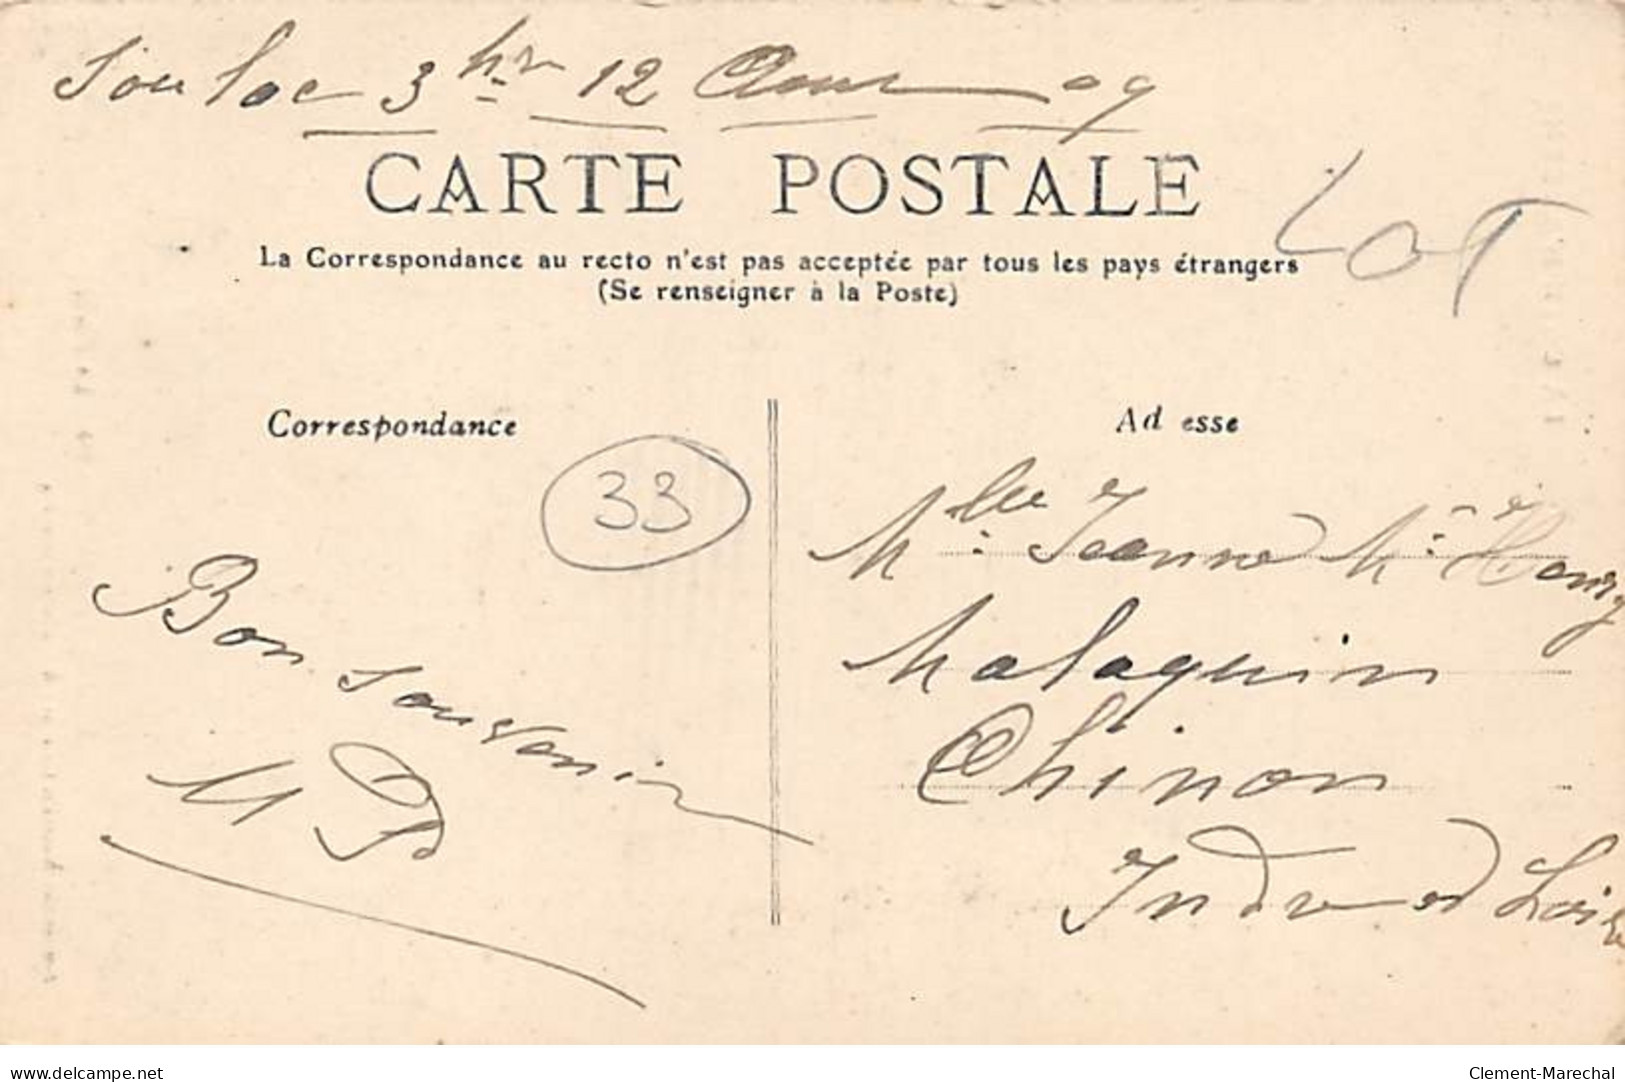 Soulac 3 hr 12 Aout 09
CARTE POSTALE
LOT
La Correspondance au recto n'est pas acceptée par tous les pays étrangers
(Se renseigner à la Poste)
Correspondance
33
Bon souvenir
MP
Ad esse
Mlle Jeanne Mce
Malaquin
Chinon
Indre et Loire
delcampe.net
Clement-Marechal